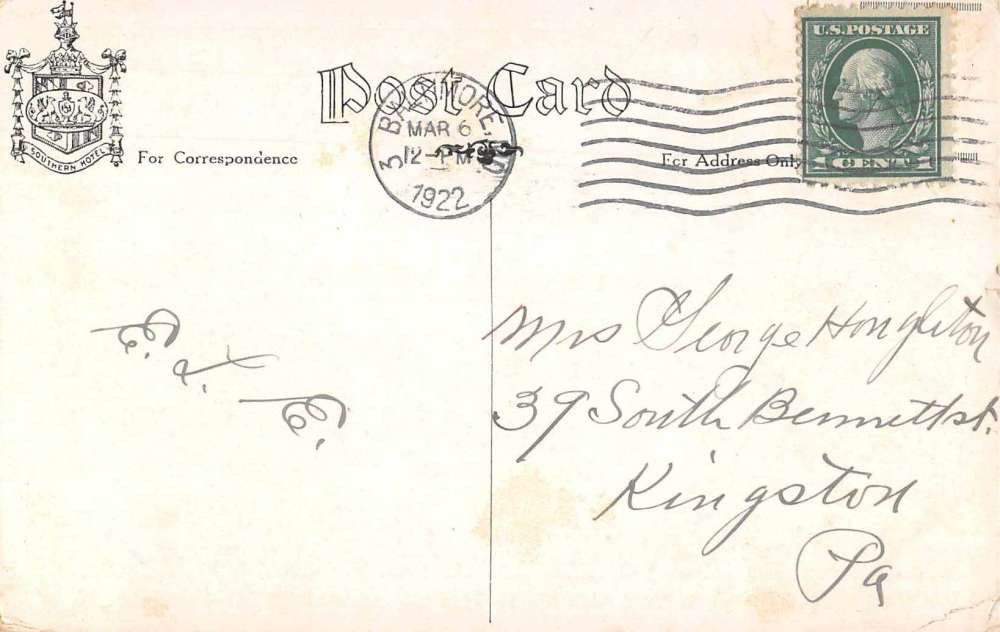 SOUTHERN HOTEL
Post Card
For Correspondence
BALTIMORE, MD
3
MAR 6
12-PM
1922
For Address Only
U.S. POSTAGE
1 CENT 1
Mrs George Houghton
39 South Bennett st.
Kingston
Pa